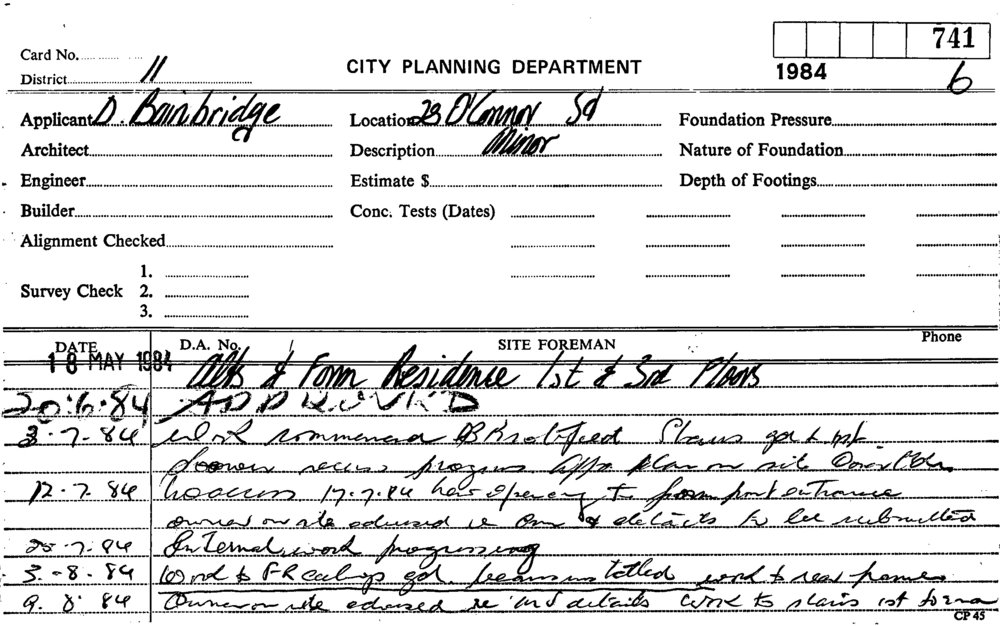 741
Card No.
CITY PLANNING DEPARTMENT
1984
6
District 11
Applicant D. Bainbridge
Location 23 O'Connor Sd
Foundation Pressure
Architect
Description Minor
Nature of Foundation
Engineer
Estimate $
Depth of Footings
Builder
Conc. Tests (Dates)
Alignment Checked
1.
Survey Check 2.
3.
DATE D.A. No. SITE FOREMAN Phone
18 MAY 1984 Alts & Form Residence 1st & 3rd Floors
20.6.84 APPROVED
3.7.84 Work commenced Stairs gd to 1st
access progress plan on site
12.7.84 No access 17.7.84 new opening to form front entrance
owner on site advised re details to be submitted
25.7.84 Internal work progressing
3.8.84 Work to F.R ceilings gd. beams installed work to rear
9.8.84 Owner on site advised re details work to stairs 1st to 2nd
CP 45